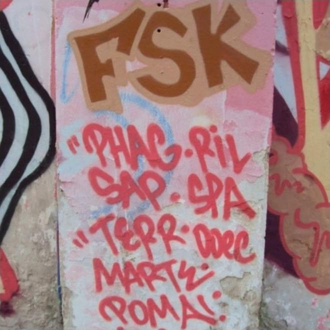 FSK
"PHAG. RIL
SAP. SPA
"TERR. DOEC
MARTE.
POMA!